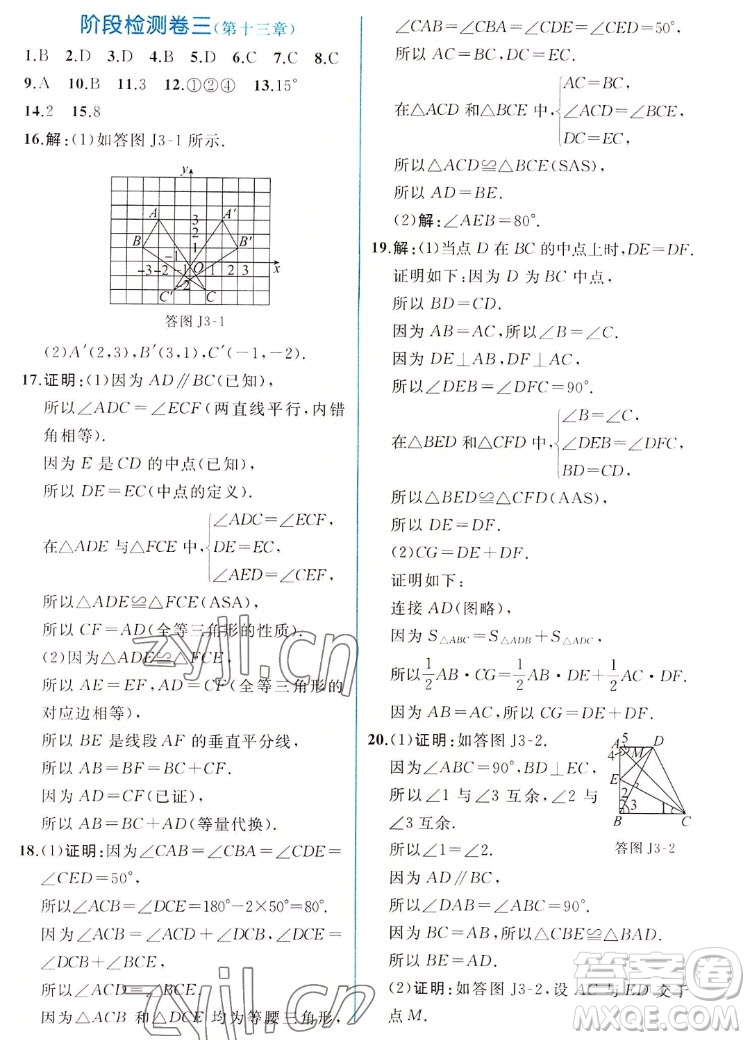 阶段检测卷三(第十三章)
1.B 2.D 3.D 4.B 5.D 6.C 7.C 8.C
9.A 10.B 11.3 12.①②④ 13.15°
14.2 15.8
16.解:(1)如答图 J3-1 所示.
y
A 3 A′
2
B 1 B′
-1
-3 -2 -1 O 1 2 3 x
-2
C′ C
答图 J3-1
(2)A′(2,3),B′(3,1),C′(-1,-2).
17.证明:(1)因为 AD∥BC(已知),
所以∠ADC=∠ECF(两直线平行,内错
角相等).
因为 E 是 CD 的中点(已知),
所以 DE=EC(中点的定义).
在△ADE 与△FCE 中,{∠ADC=∠ECF,
DE=EC,
∠AED=∠CEF,
所以△ADE≌△FCE(ASA),
所以 CF=AD(全等三角形的性质).
(2)因为△ADE≌△FCE,
所以 AE=EF,AD=CF(全等三角形的
对应边相等),
所以 BE 是线段 AF 的垂直平分线,
所以 AB=BF=BC+CF.
因为 AD=CF(已证),
所以 AB=BC+AD(等量代换).
18.(1)证明:因为∠CAB=∠CBA=∠CDE=
∠CED=50°,
所以∠ACB=∠DCE=180°-2×50°=80°.
因为∠ACB=∠ACD+∠DCB,∠DCE=
∠DCB+∠BCE,
所以∠ACD=∠BCE.
因为△ACB 和△DCE 均为等腰三角形,
∠CAB=∠CBA=∠CDE=∠CED=50°,
所以 AC=BC,DC=EC.
在△ACD 和△BCE 中,{AC=BC,
∠ACD=∠BCE,
DC=EC,
所以△ACD≌△BCE(SAS),
所以 AD=BE.
(2)解:∠AEB=80°.
19.解:(1)当点 D 在 BC 的中点上时,DE=DF.
证明如下:因为 D 为 BC 中点,
所以 BD=CD.
因为 AB=AC,所以∠B=∠C.
因为 DE⊥AB,DF⊥AC,
所以∠DEB=∠DFC=90°.
在△BED 和△CFD 中,{∠B=∠C,
∠DEB=∠DFC,
BD=CD,
所以△BED≌△CFD(AAS),
所以 DE=DF.
(2)CG=DE+DF.
证明如下:
连接 AD(图略),
因为 S△ABC=S△ADB+S△ADC,
所以1/2AB·CG=1/2AB·DE+1/2AC·DF.
因为 AB=AC,所以 CG=DE+DF.
20.(1)证明:如答图 J3-2.
因为∠ABC=90°,BD⊥EC,
所以∠1 与∠3 互余,∠2 与
∠3 互余.
所以∠1=∠2.
A 5 D
4 M
E
2
3 1
B C
答图 J3-2
因为 AD∥BC,
所以∠DAB=∠ABC=90°.
所以△CBE≌△BAD.
所以 BE=AD.
(2)证明:如答图 J3-2,设 AC 与 ED 交于
点 M.
zyjl.cn
zyjl.cn
答案卷
MXQE.COM